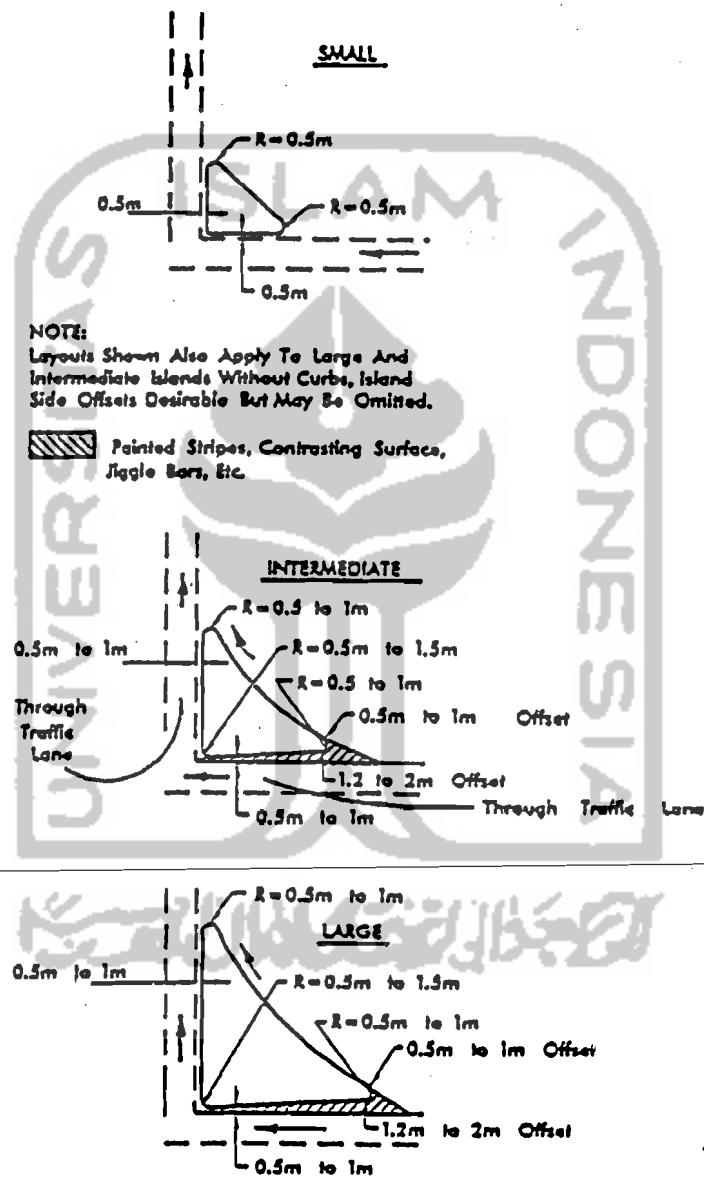 SMALL
R=0.5m
0.5m
R=0.5m
0.5m
NOTE:
Layouts Shown Also Apply To Large And
Intermediate Islands Without Curbs, Island
Side Offsets Desirable But May Be Omitted.
Painted Stripes, Contrasting Surface,
Jiggle Bars, Etc.
INTERMEDIATE
R=0.5 to 1m
0.5m to 1m
R=0.5m to 1.5m
R=0.5 to 1m
Through
Traffic
Lane
0.5m to 1m Offset
1.2 to 2m Offset
0.5m to 1m
Through Traffic Lane
R=0.5m to 1m
LARGE
0.5m to 1m
R=0.5m to 1.5m
R=0.5m to 1m
0.5m to 1m Offset
1.2m to 2m Offset
0.5m to 1m
UNIVERSITAS ISLAM INDONESIA